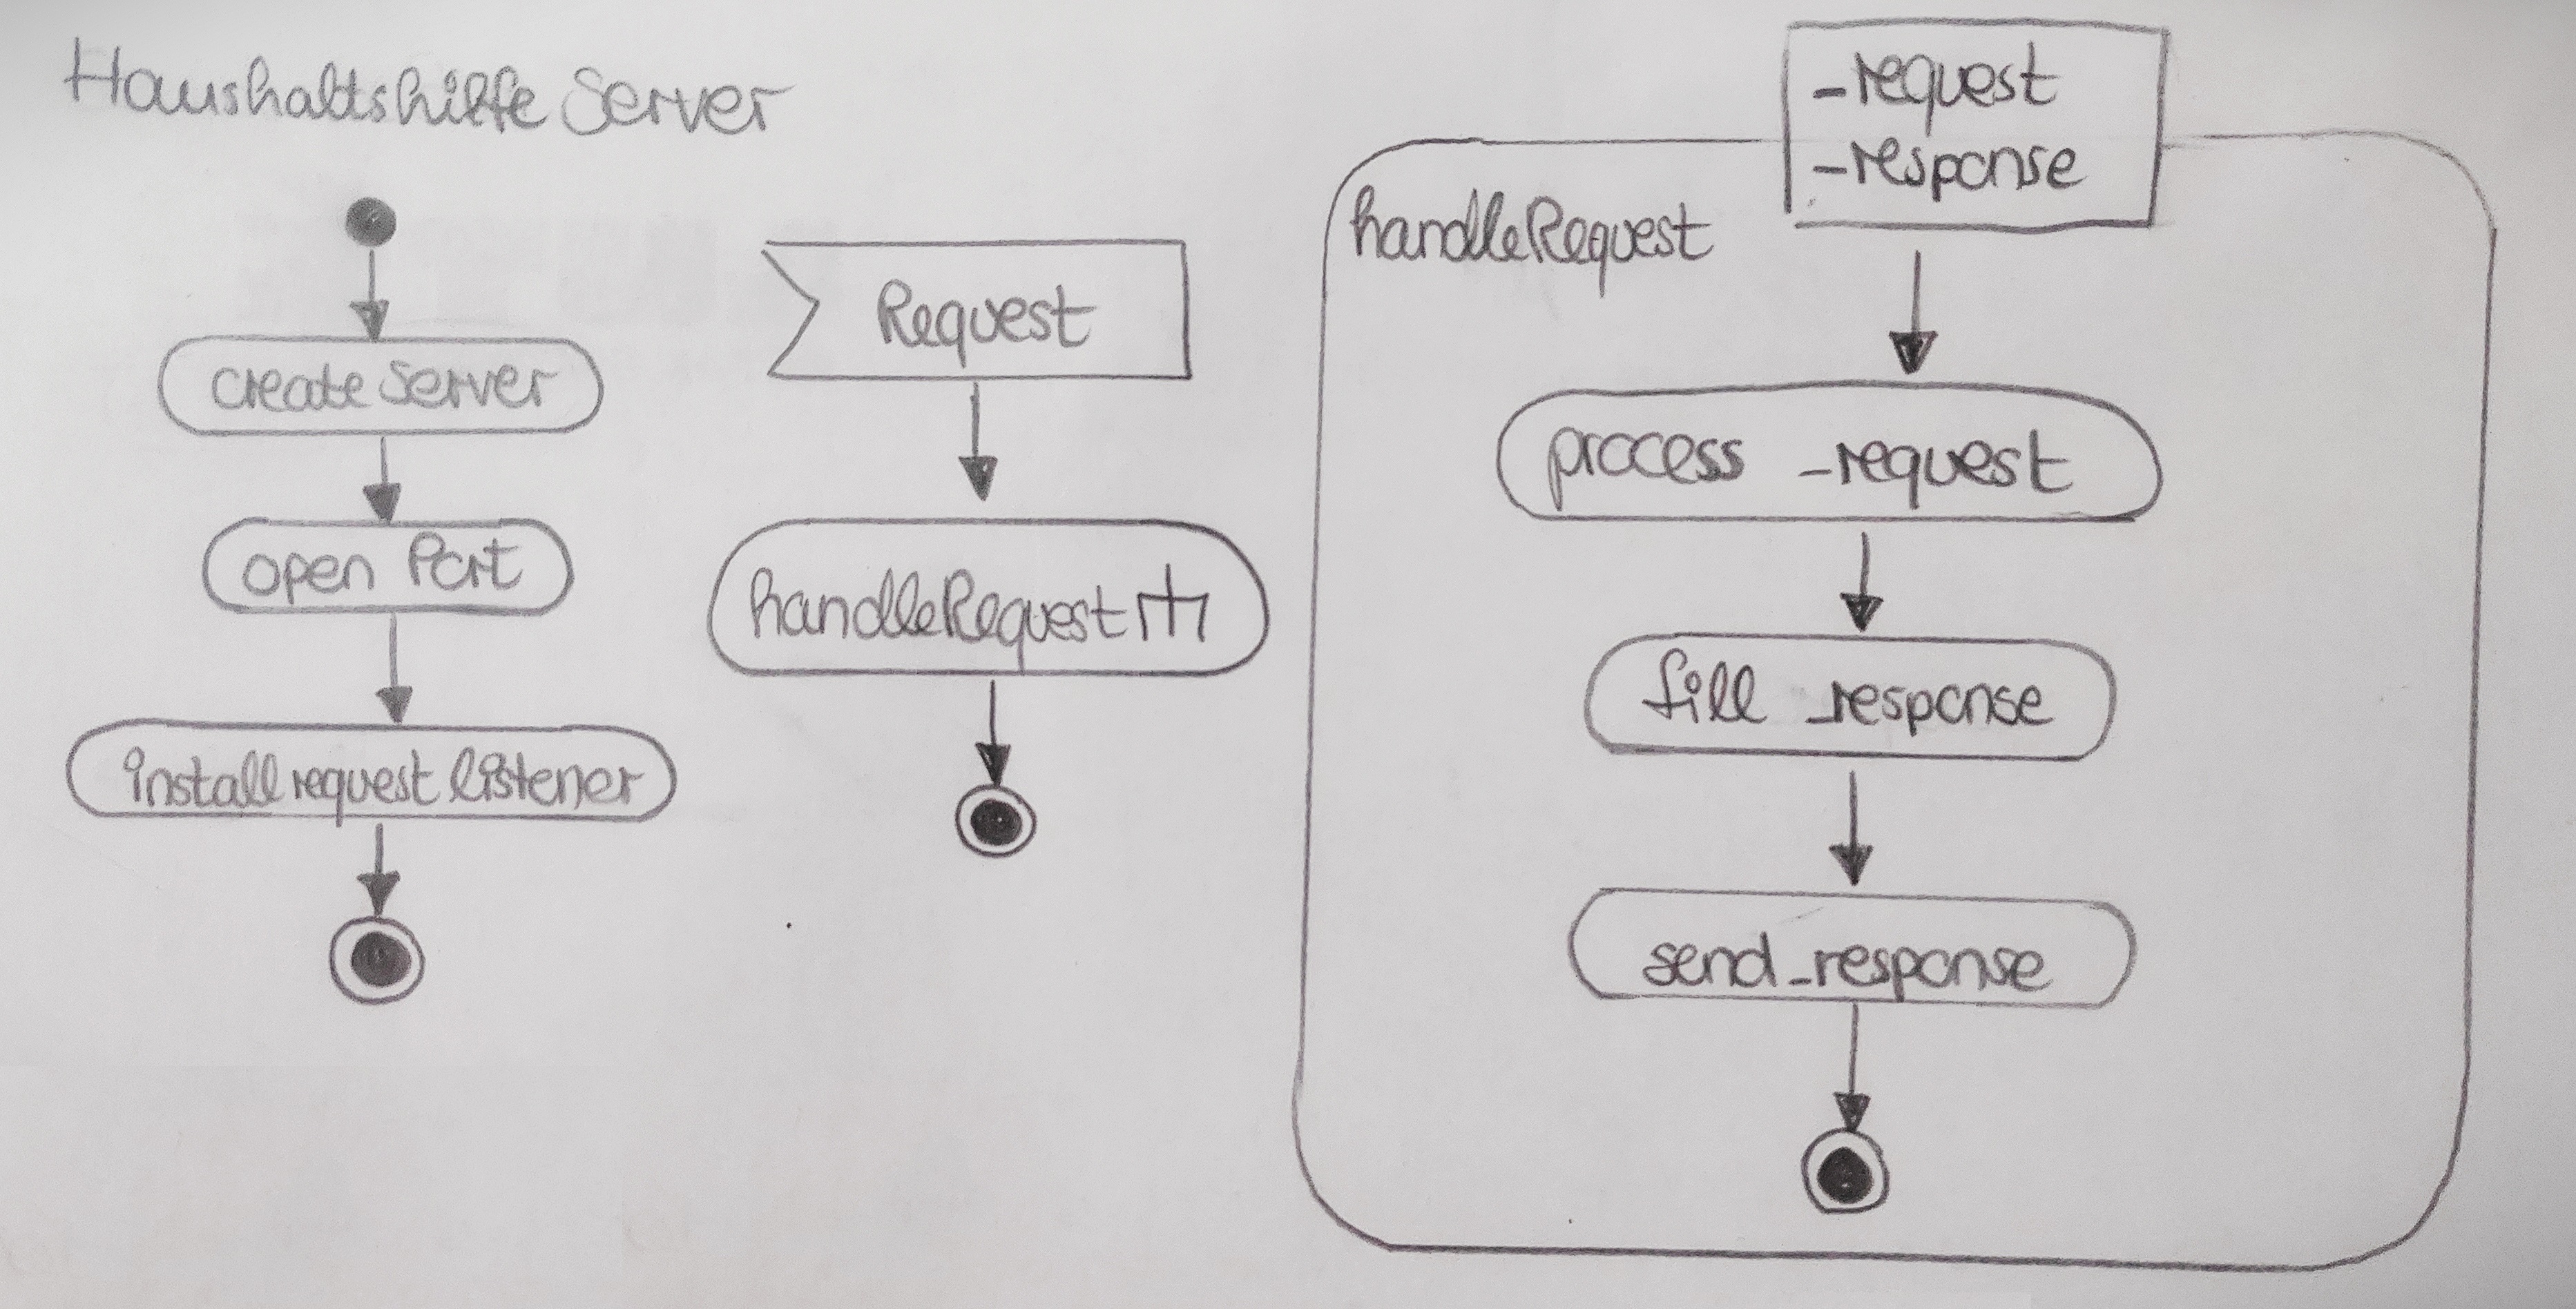 Haushaltshilfe Server
create Server
open Port
install request listener
Request
handleRequest
_request
_response
handleRequest
process _request
fill _response
send _response